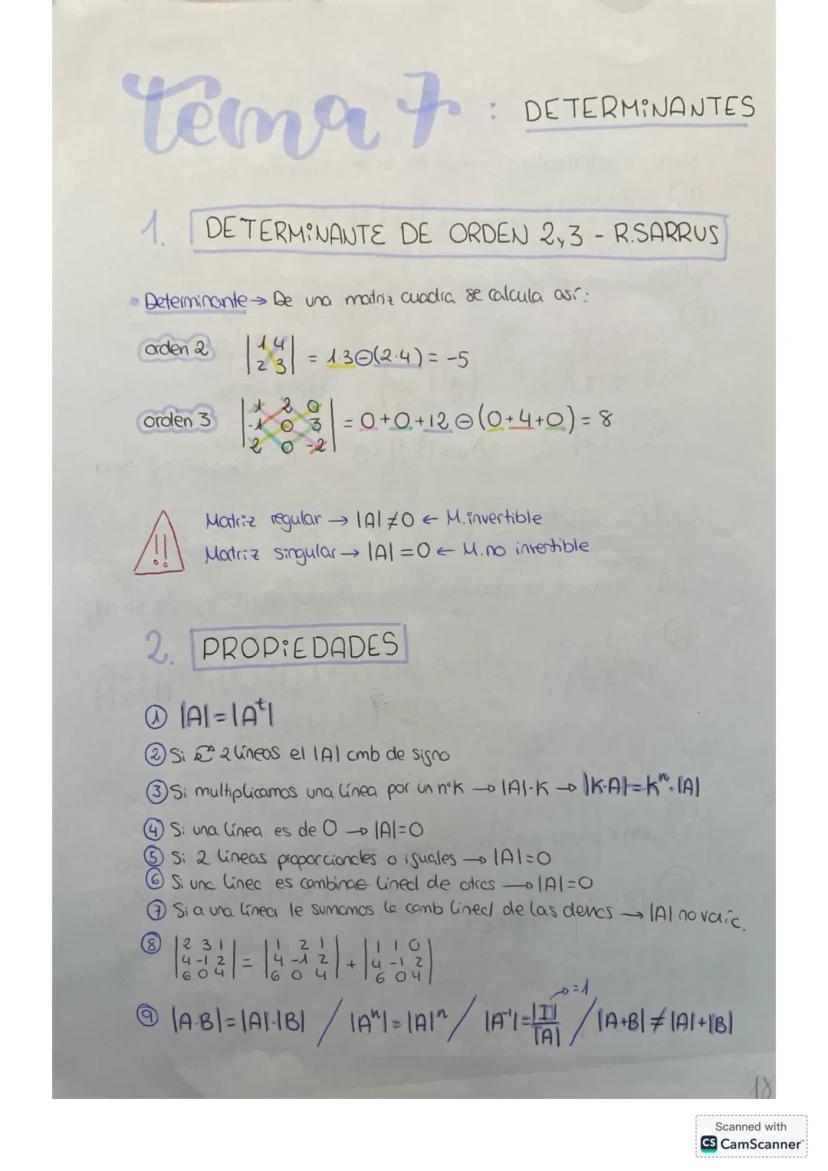 tema 7 : DETERMINANTES
1. DETERMINANTE DE ORDEN 2y3 - R.SARRUS
Determinante → De una matriz cuadra se calcula así:
orden 2 |1 4
2 3| = 1·3⊖(2·4) = -5
orden 3 |1 2 0
-1 0 3
2 0 -2| = 0+0+12⊖(0+4+0) = 8
!! Matriz regular → |A|≠0 ← M.invertible
Matriz singular → |A|=0 ← M.no invertible
2. PROPIEDADES
① |A|=|Aᵗ|
② Si 2 líneas el |A| cmb de signo
③ Si multiplicamos una línea por un nºK → |A|·K → |K·A|=Kⁿ·|A|
④ Si una línea es de 0 → |A|=0
⑤ Si 2 líneas proporcionales o iguales → |A|=0
⑥ Si una línea es combinae lineal de otras → |A|=0
⑦ Si a una línea le sumamos la comb lineal de las demás → |A| no varía.
⑧ |2 3 1
4 -1 2
6 0 4| = |1 2 1
4 -1 2
6 0 4| + |1 1 0
4 -1 2
6 0 4|
→=1
⑨ |A·B|=|A|·|B| / |Aⁿ|=|A|ⁿ / |A⁻¹|=|I|/|A| / |A+B|≠|A|+|B|
18
Scanned with
CS CamScanner